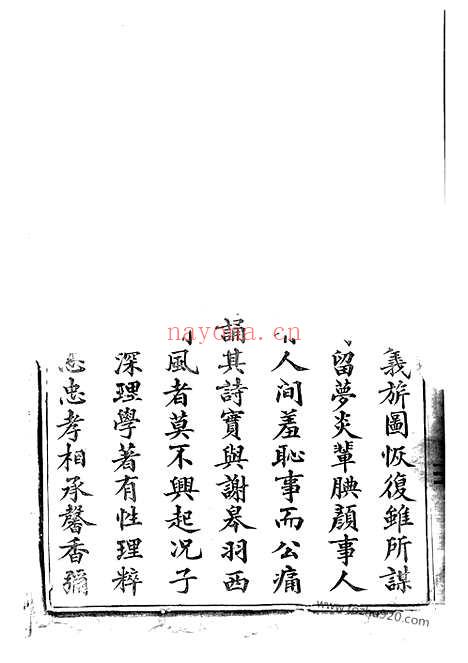 義旂圖恢復雖所謀
留夢炎輩腆顏事人
人間羞恥事而公痛
誦其詩實與謝皋羽西
風者莫不興起况子
深理學著有性理粹
忠孝相承馨香彌
nayona.cn
www.fozhu920.com